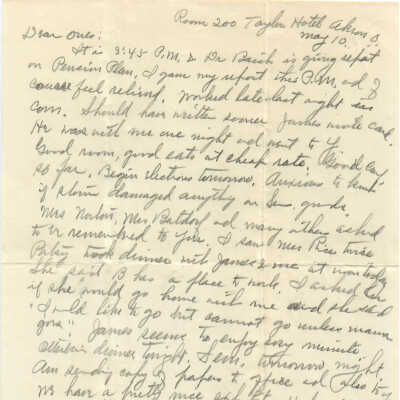 Room 200 Taylor Hotel Akron O.
May 10.
Dear Ones:
It is 3:45 P.M. & Dr is giving report
on Pension Plan. I gave my report this P.M. and I
course feel relieved. Worked late last night in
Com. Should have written sooner. James wrote card.
He was with me one night and went to
Good room, good eats at cheap rate. Good
so far. Begin elections tomorrow. Anxious to hear
if storm damaged anything on
Mrs Norton, Mrs and many others asked
to be remembered to you. I saw Mrs Rice twice
Patsy took dinner with James & me at noon today
She said B has a place to work. I asked her
if she would go home with me and she said
"I would like to go but cannot go unless mama
goes." James seems to enjoy every minute.
dinner tonight. tomorrow night
Am sending copy of papers to office and also to
We have a pretty nice